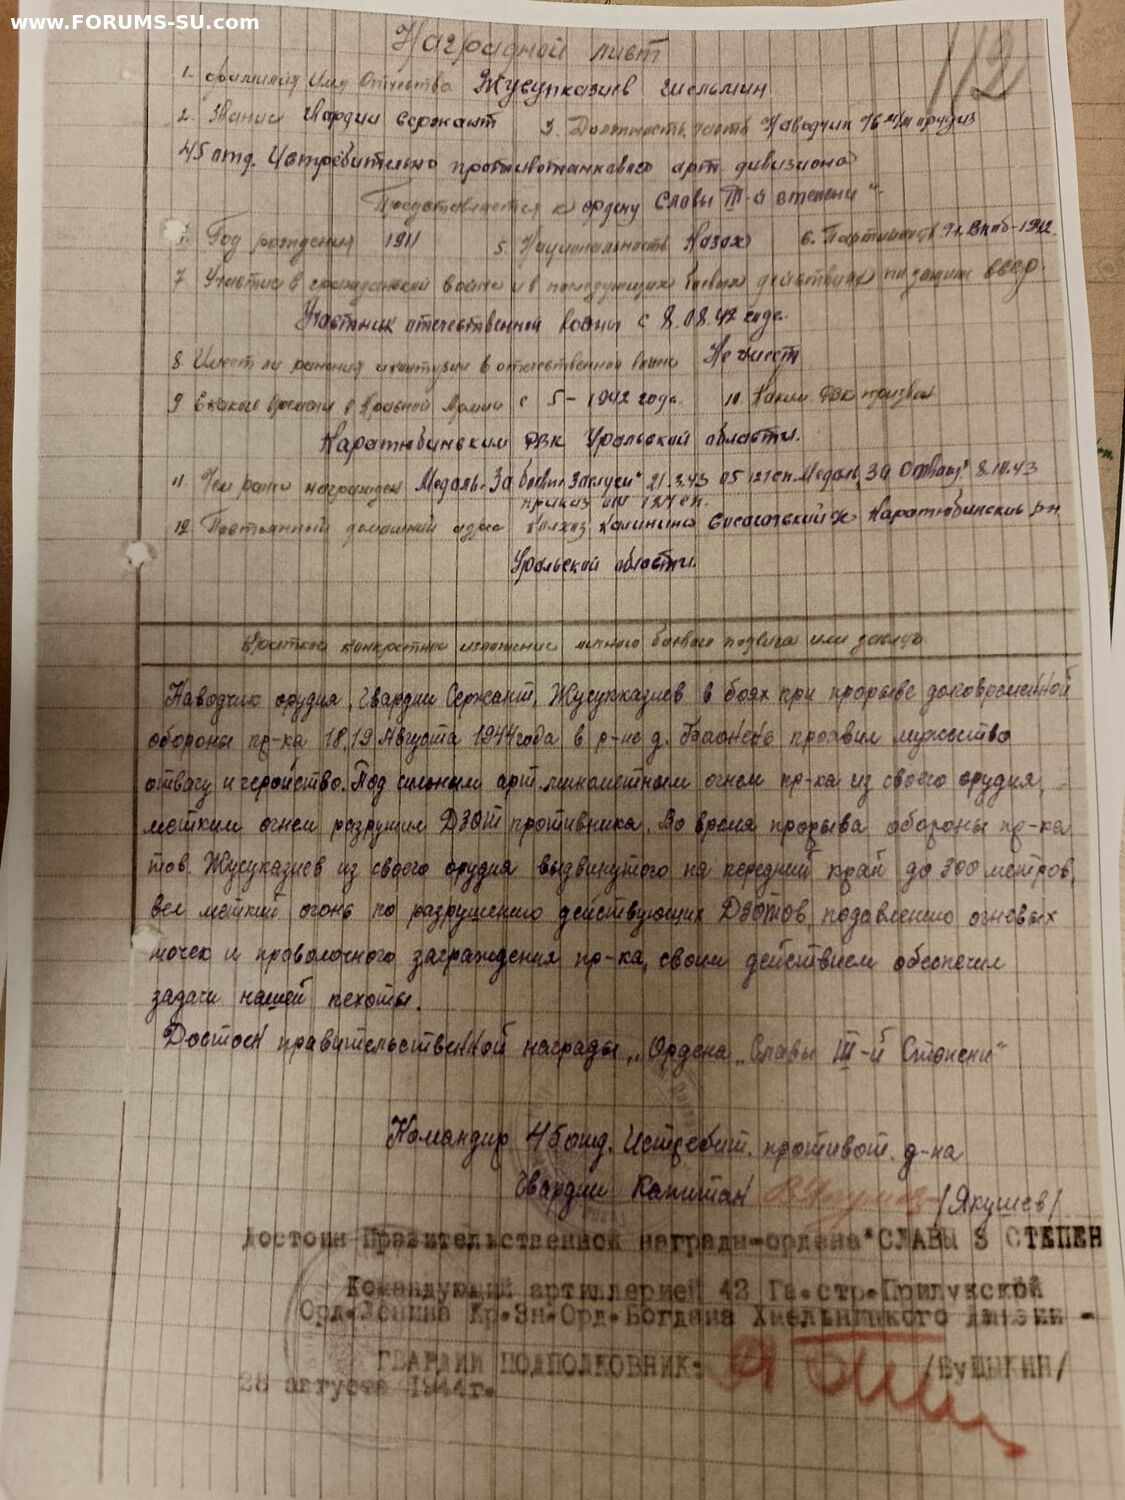 www.FORUMS-SU.com
112
Наградной лист
1. Фамилия Имя Отчество Жусупказиев
2. Звание Гвардии сержант 3. Должность, часть Наводчик 76 м/м орудия
45 отд. Истребительно противотанкового арт. дивизиона
Представляется к ордену Славы III-й степени"
Год рождения 1911 5. Национальность Казах 6. Партийность 1942
7 Участие в гражданской войне и в последующих боевых действиях по защите СССР.
Участник отечественной войны с 8.08.42 года.
8 Имеет ли ранения и контузии в отечественной войне Не имеет
9 С какого времени в Красной Армии с 5-1942 года. 10 Каким РВК призван
Каратюбинским РВК Уральской области.
11 Чем ранее награжден Медаль "За боевые Заслуги" 21.3.43 Медаль "За Отвагу" 8.10.43
приказ
12. Постоянный домашний адрес Колхоз Калинина Каратюбинский р-н
Уральской области.
Краткое конкретное изложение личного боевого подвига или заслуг
Наводчик орудия, Гвардии Сержант, Жусупказиев в боях при прорыве долговременной
обороны пр-ка 18,19 Августа 1944 года в р-не д. проявил мужество
отвагу и геройство. Под сильным арт. минометным огнем пр-ка из своего орудия,
метким огнем разрушил ДЗОТ противника. Во время прорыва обороны пр-ка
тов. Жусуказиев из своего орудия выдвинутого на передний край до 300 метров,
вел меткий огонь по разрушению действующих ДЗОТов, подавлению огневых
точек и проволочного заграждения пр-ка, своим действием обеспечил
задачи нашей пехоты.
Достоен правительственной награды "Ордена "Славы III-й Степени"
Командир 45 отд. Истребит. противот. д-на
Гвардии Капитан /Якушев/
Достоин Правительственной награды-ордена "СЛАВЫ 3 СТЕПЕН
Командующий артиллерией 43 Гв.стр.Прилукской
Орд.Ленина Кр.Зн.Орд.Богдана Хмельницкого дивизии -
ГВАРДИИ ПОДПОЛКОВНИК: /БУЦЫКИН/
28 августа 1944г.